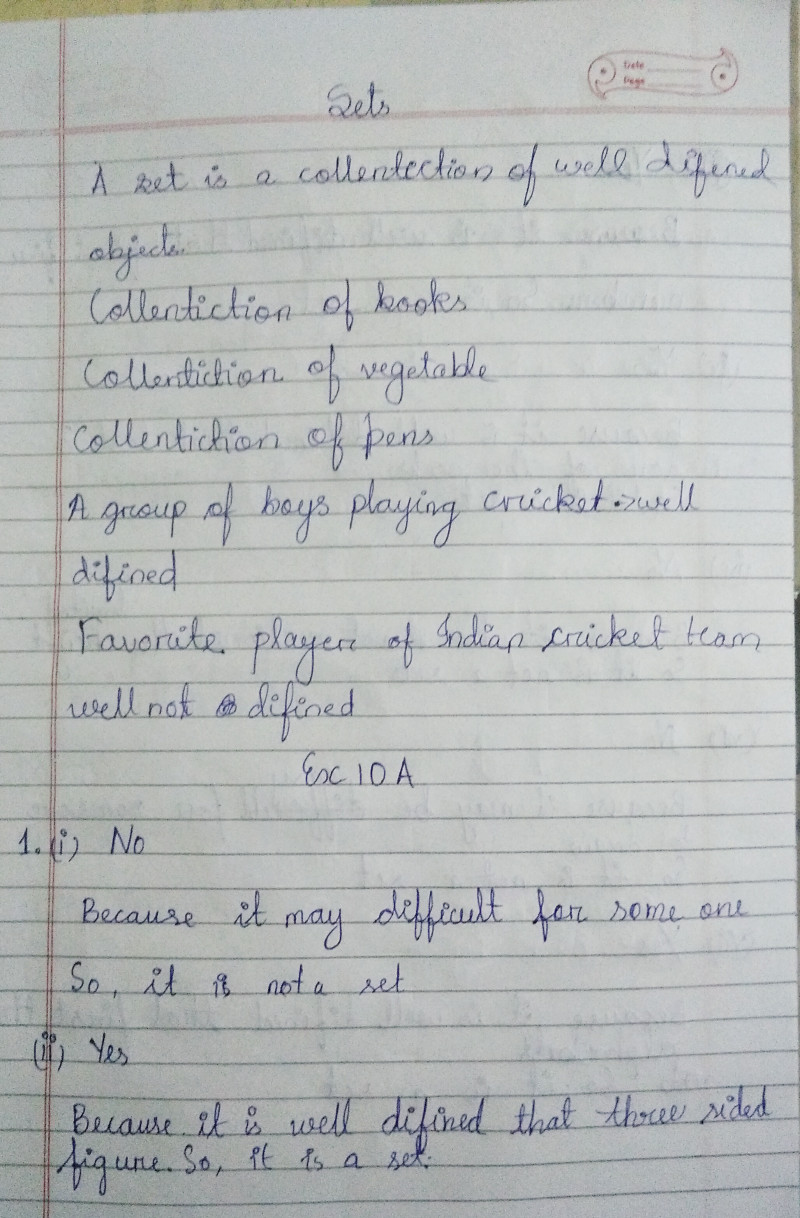 Date
Page
Sets
A set is a collentection of well difened
objects.
Collentiction of books
Collentiction of vegetable
Collentichion of pens
A group of boys playing cricket → well
difined
Favorite player of Indian cricket team
well not difined
Exc 10 A
1. (i) No
Because it may difficult for some one
So, it is not a set
(ii) Yes
Because it is well difined that three sided
figure. So, it is a set.